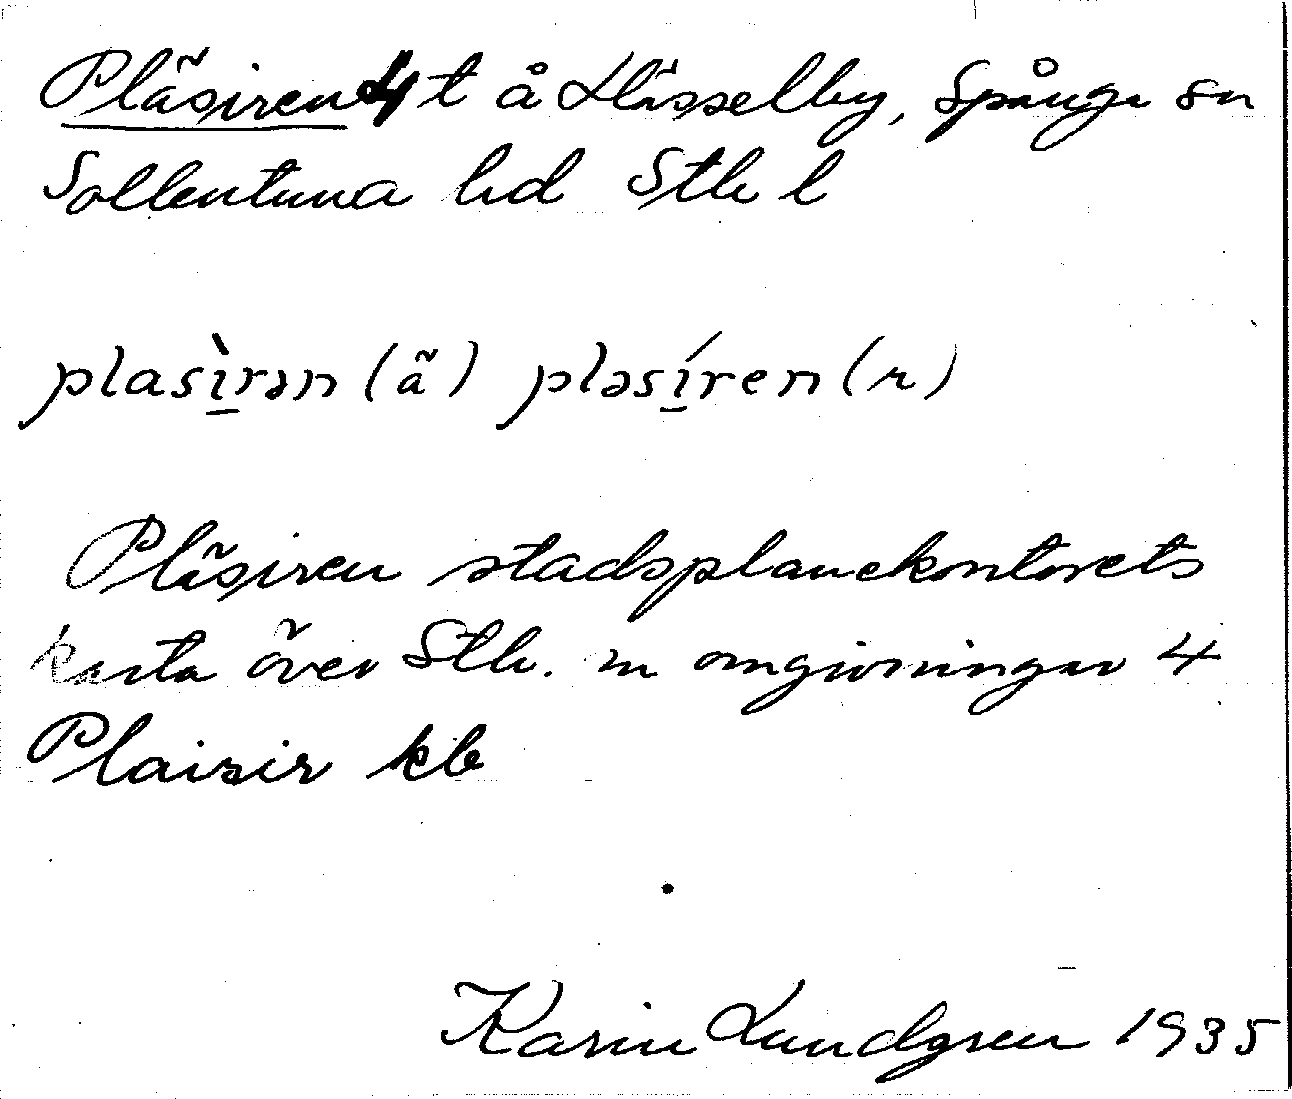 Pläsiren 4 t å Hässelby, Spånga sn
Sollentuna hd Sth l
plasì̱rən (ã) pləsí̱ren (r)
Pläsiren stadsplanekontorets
karta över Sth. m omgivningar 4
Plaisir kb
Karin Lundgren 1935